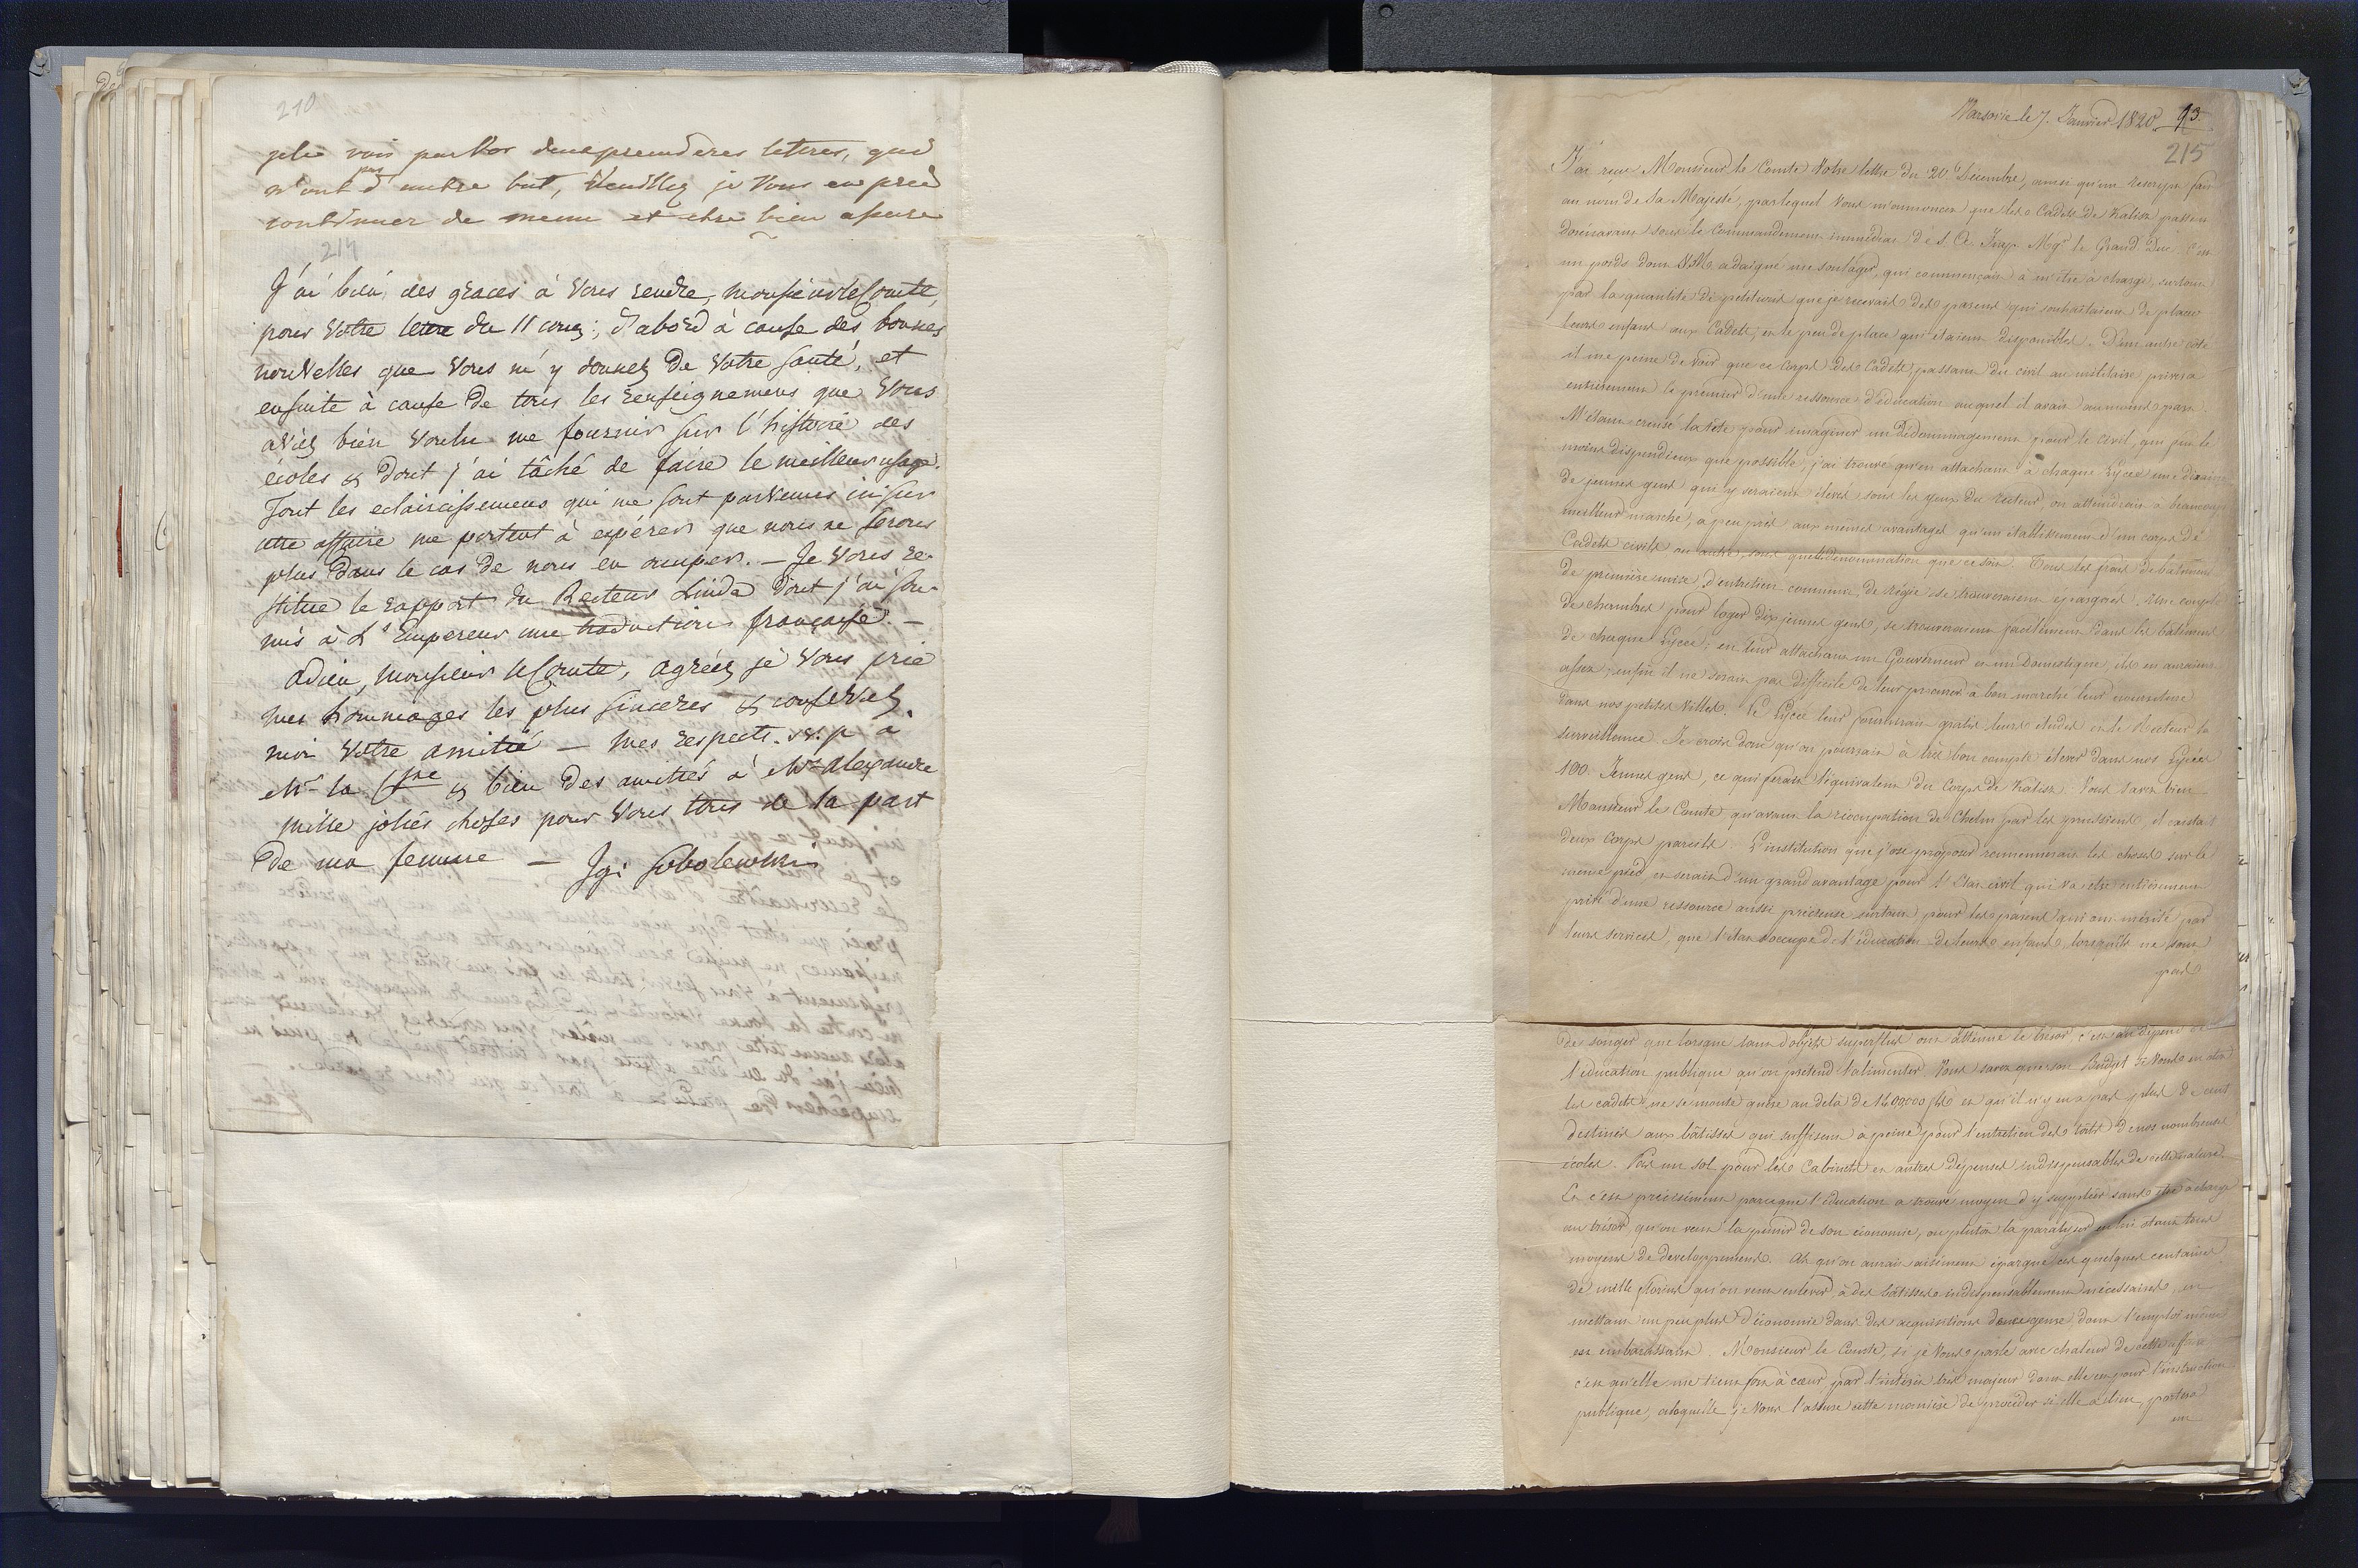 210
vois par Vos deux premderes lettres, qui
n'ont pas d'autre but, Veuillez je Vous en prie
continuer de meme et etre bien assure
214
J'ai bien des graces à Vous rendre, Monsieur le Comte,
pour Votre lettre du 11 cour; d'abord à cause des bonnes
nouvelles que Vous m'y donnez de Votre santé, et
ensuite à cause de tous les renseignemens que Vous
avez bien voulu me fournir sur l'histoire des
écoles & dont j'ai tâché de faire le meilleur usage.
Tout les eclaircissemens qui me sont parvenus ici sur
cette affaire me portent à espérer que nous ne serons
plus dans le cas de nous en occuper. — Je Vous re-
stitue le rapport du Recteur Linde dont j'ai sou-
mis à L'Empereur une traduction française. —
Adieu, Monsieur le Comte, agréez je Vous prie
mes hommages les plus sinceres & conservez
moi Votre amitié — Mes respects s.v.p. à
Me la Csse & bien des amitiés à Mr Alexandre
mille jolies choses pour Vous tous de la part
de ma femme — Ign Sobolewski
Varsovie le 7. Janvier 1820 93.
215
J'ai reçu Monsieur le Comte Votre lettre du 20 Decembre, ainsi qu'un rescrypt fait
au nom de Sa Majesté, par lequel Vous m'annoncez que les Cadets de Kalisz passent
dorénavant sous le Commandement immédiat de S. A. Imp. Mgr le Grand Duc. C'est
un poids dont S M. a daigné me soulager, qui commençait à m'être à charge, surtout
par la quantité de petitions que je recevais des parens qui souhaitaient de placer
leurs enfans aux Cadets, et le peu de place qui étaient disponibles. D'un autre côté
il me peine de voir que ce Corps des Cadets, passant du civil au militaire, privera
entierement le premier d'une ressource d'éducation auquel il avait au moins part.
M'étant creusé la tête pour imaginer un dédommagement pour le civil, qui fut le
moins dispendieux que possible, j'ai trouvé qu'en attachant à chaque Lycée une dixaine
de jeunes gens qui y seraient élevés sous les yeux du Recteur, on atteindrait à beaucoup
meilleur marché, a peu près aux memes avantages qu'un établissement d'un corps de
Cadets civils ou autre, sous quelle denomination que ce soit. Tous les frais de batimens
de premiere mise, d'entretien commun, de régie se trouveraient épargnés. Une couple
de chambres pour loger dix jeunes gens, se trouveraient facilement dans les bâtimens
de chaque Lycée; en leur attachant un Gouverneur et un Domestique, ils en auraient
assez; enfin il ne serait pas difficile de leur procurer à bon marché leur nourriture
dans nos petites villes. Le Lycée leur fournirait gratis leurs études et le Recteur sa
surveillance. Je crois donc qu'on pourrait à très bon compte élever dans nos Lycées
100 Jeunes gens, ce qui ferait l'équivalent du Corps de Kalisz. Vous savez bien
Monsieur le Comte qu'avant la réoccupation de Chelm par les prussiens, il existait
deux Corps pareils. L'institution que j'ose proposer remmenerait les choses sur le
meme pied, et serait d'un grand avantage pour l'Etat civil qui va etre entierement
privé d'une ressource aussi précieuse surtout pour les parens qui ont mérité par
leurs services, que l'état s'occupe de l'éducation de leurs enfans, lorsqu'ils ne sont
pas
de songer que lorsque tant d'objets superflus ont attenué le tresor, c'est au dépens de
l'education publique qu'on prétend l'alimenter. Vous savez que son Budget si Vous en otez
les cadets, ne se monte guère au delà de 1400,000 fls et qu'il n'y en a pas plus de cent
destinés aux bâtisses qui suffisent à peine pour l'entretien des toits de nos nombreuses
écoles. Pas un sol pour les Cabinets et autres dépenses indispensables de cette nature.
Et c'est précisément parceque l'éducation a trouvé moyen d'y suppléer sans etre à charge
au trésor, qu'on veut la punir de son économie, ou plutôt la paralyser en lui otant tous
moyens de developpemens. Ah qu'on aurait aisément épargné ces quelques centaines
de mille florins qu'on veut enlever à des bâtisses indispensablement nécessaires, en
mettant un peu plus d'économie dans des acquisitions de ce genre, dont l'emploi même
est embarassant. Monsieur le Comte, si je Vous parle avec chaleur de cette affaire
c'est qu'elle me tient fort à cœur par l'intérêt très majeur dont elle est pour l'instruction
publique, à laquelle je Vous l'assure cette maniere de procéder si elle a lieu, portera
un